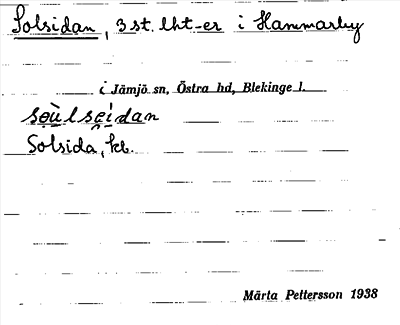 Solsidan, 3 st. lht-er i Hammarby
i Jämjö sn, Östra hd, Blekinge l.
søùlsęídan
Solsida, kb.
Märta Pettersson 1938